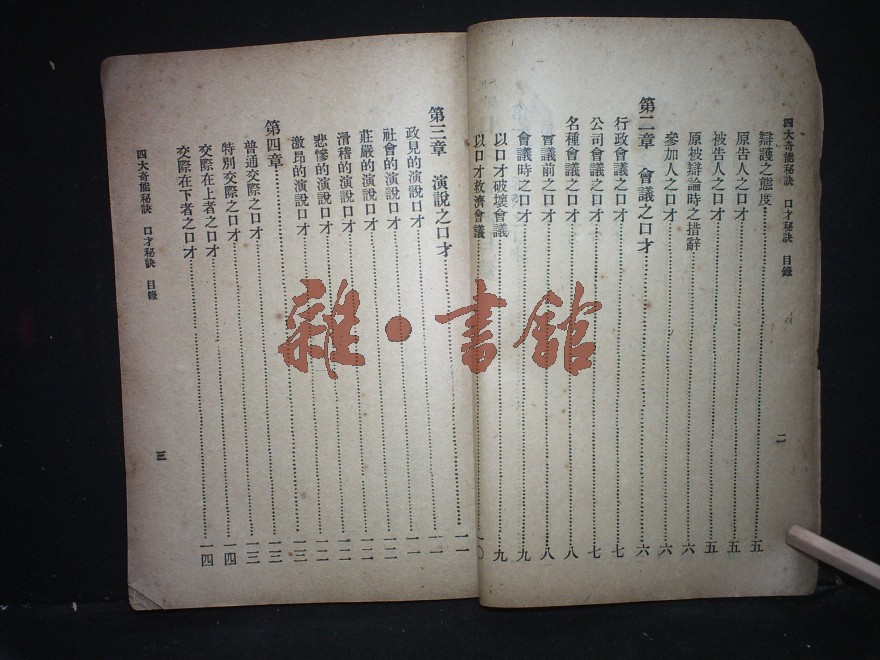 四大奇能秘訣 口才秘訣 目錄
二
辯護之態度……五
原告人之口才……五
被告人之口才……五
原被辯論時之措辭……六
參加人之口才……六
第二章 會議之口才……六
行政會議之口才……七
公司會議之口才……七
名種會議之口才……八
會議前之口才……八
會議時之口才……九
以口才破壞會議……九
以口才救濟會議……一〇
第三章 演說之口才……一一
政見的演說口才……一一
社會的演說口才……一一
莊嚴的演說口才……一二
滑稽的演說口才……一二
悲慘的演說口才……一二
激昂的演說口才……一二
第四章……一三
普通交際之口才……一三
特別交際之口才……一三
交際在上者之口才……一四
交際在下者之口才……一四
四大奇能秘訣 口才秘訣 目錄
三
雜·書館